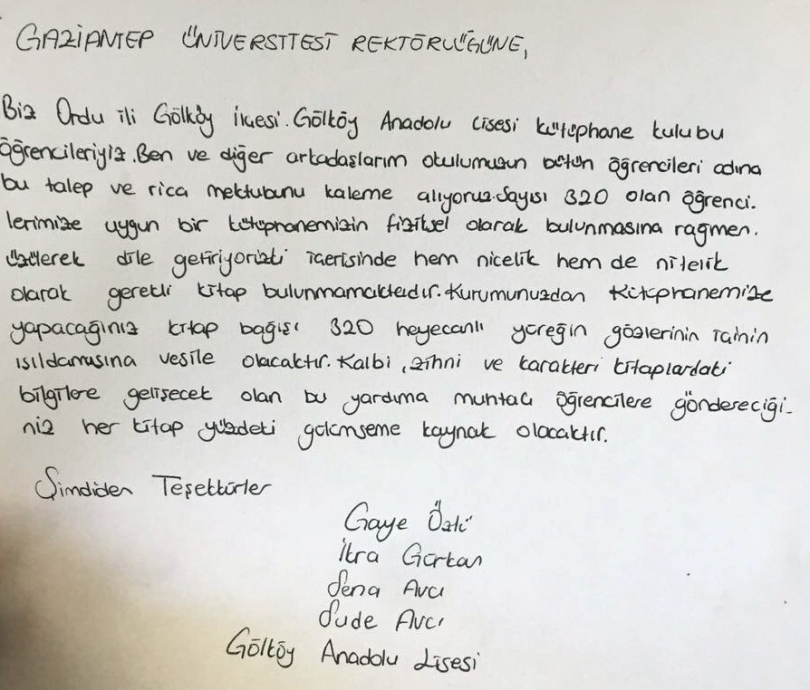 GAZİANTEP ÜNİVERSİTESİ REKTÖRLÜĞÜNE,
Biz Ordu ili Gölköy ilçesi. Gölköy Anadolu Lisesi kütüphane kulubu
öğrencileriyiz. Ben ve diğer arkadaşlarım okulumuzun bütün öğrencileri adına
bu talep ve rica mektubunu kaleme alıyoruz. Sayısı 320 olan öğrenci.
lerimize uygun bir kütüphanemizin fiziksel olarak bulunmasına rağmen.
üzülerek dile getiriyorizki içerisinde hem nicelik hem de nitelik
olarak gerekli kitap bulunmamaktadır. Kurumunuzdan Kütüphanemize
yapacağınız kitap bağışı 320 heyecanlı yüreğin gözlerinin içinin
ışıldamasına vesile olacaktır. Kalbi, zihni ve karakteri kitaplardaki
bilgilere gelişecek olan bu yardıma muhtaç öğrencilere göndereceği-
niz her kitap yüzdeki gülümseme kaynak olacaktır.
Şimdiden Teşekkürler
Gaye Özlü
İkra Gürkan
Sena Avcı
Sude Avcı
Gölköy Anadolu Lisesi